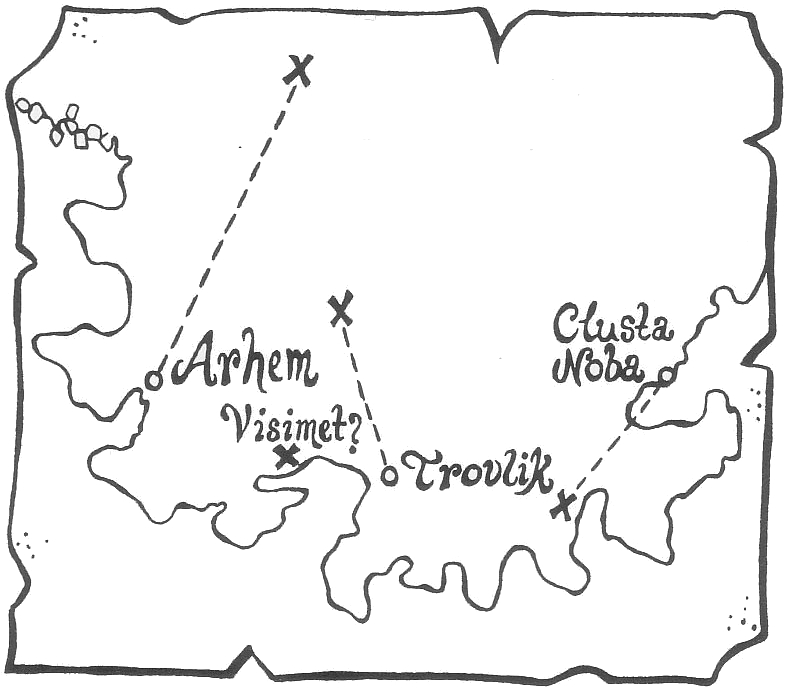 Clusta
Noba
Arhem
Visimet?
Trovlik